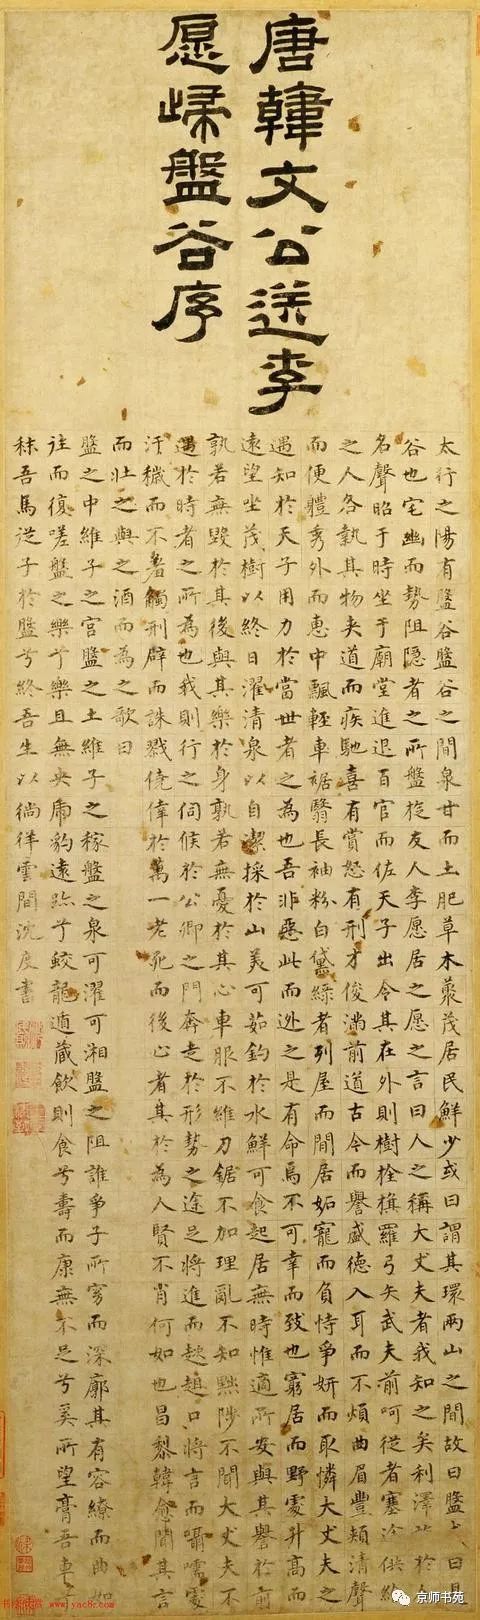 唐韓文公送李
愿歸盤谷序
太行之陽有盤谷盤谷之間泉甘而土肥草木藂茂居民鮮少或曰謂其環兩山之間故曰盤〻曰是
谷也宅幽而勢阻隱者之所盤旋友人李愿居之愿之言曰人之稱大丈夫者我知之矣利澤施於人
名聲昭于時坐于廟堂進退百官而佐天子出令其在外則樹栓旗羅弓矢武夫前呵從者塞途供給
之人各執其物夾道而疾馳喜有賞怒有刑才俊滿前道古今而譽盛德入耳而不煩曲眉豐頰清聲
而便體秀外而惠中飄輕車裾翳長袖粉白黛綠者列屋而閒居妬寵而負恃爭妍而取憐大丈夫之
遇知於天子用力於當世者之為也吾非惡此而逃之是有命焉不可幸而致也窮居而野處升高而
遠望坐茂樹以終日濯清泉以自潔採於山美可茹釣於水鮮可食起居無時惟適所安與其譽於前
孰若無毀於其後與其樂於身孰若無憂於其心車服不維刀鋸不加理亂不知黜陟不聞大丈夫不
遇於時者之所為也我則行之伺候於公卿之門奔走於形勢之途足將進而趑趄口將言而囁嚅處
汙穢而不羞觸刑辟而誅戮僥倖於萬一老死而後止者其於為人賢不肖何如也昌黎韓愈聞其言
而壯之與之酒而為之歌曰
盤之中維子之宮盤之土維子之稼盤之泉可濯可湘盤之阻誰爭子所窈而深廓其有容繚而曲如
往而復嗟盤之樂兮樂且無央虎豹遠跡兮蛟龍遁藏飲則食兮壽而康無不足兮奚所望膏吾車兮
秣吾馬從子於盤兮終吾生以徜徉雲間沈度書
京师书苑